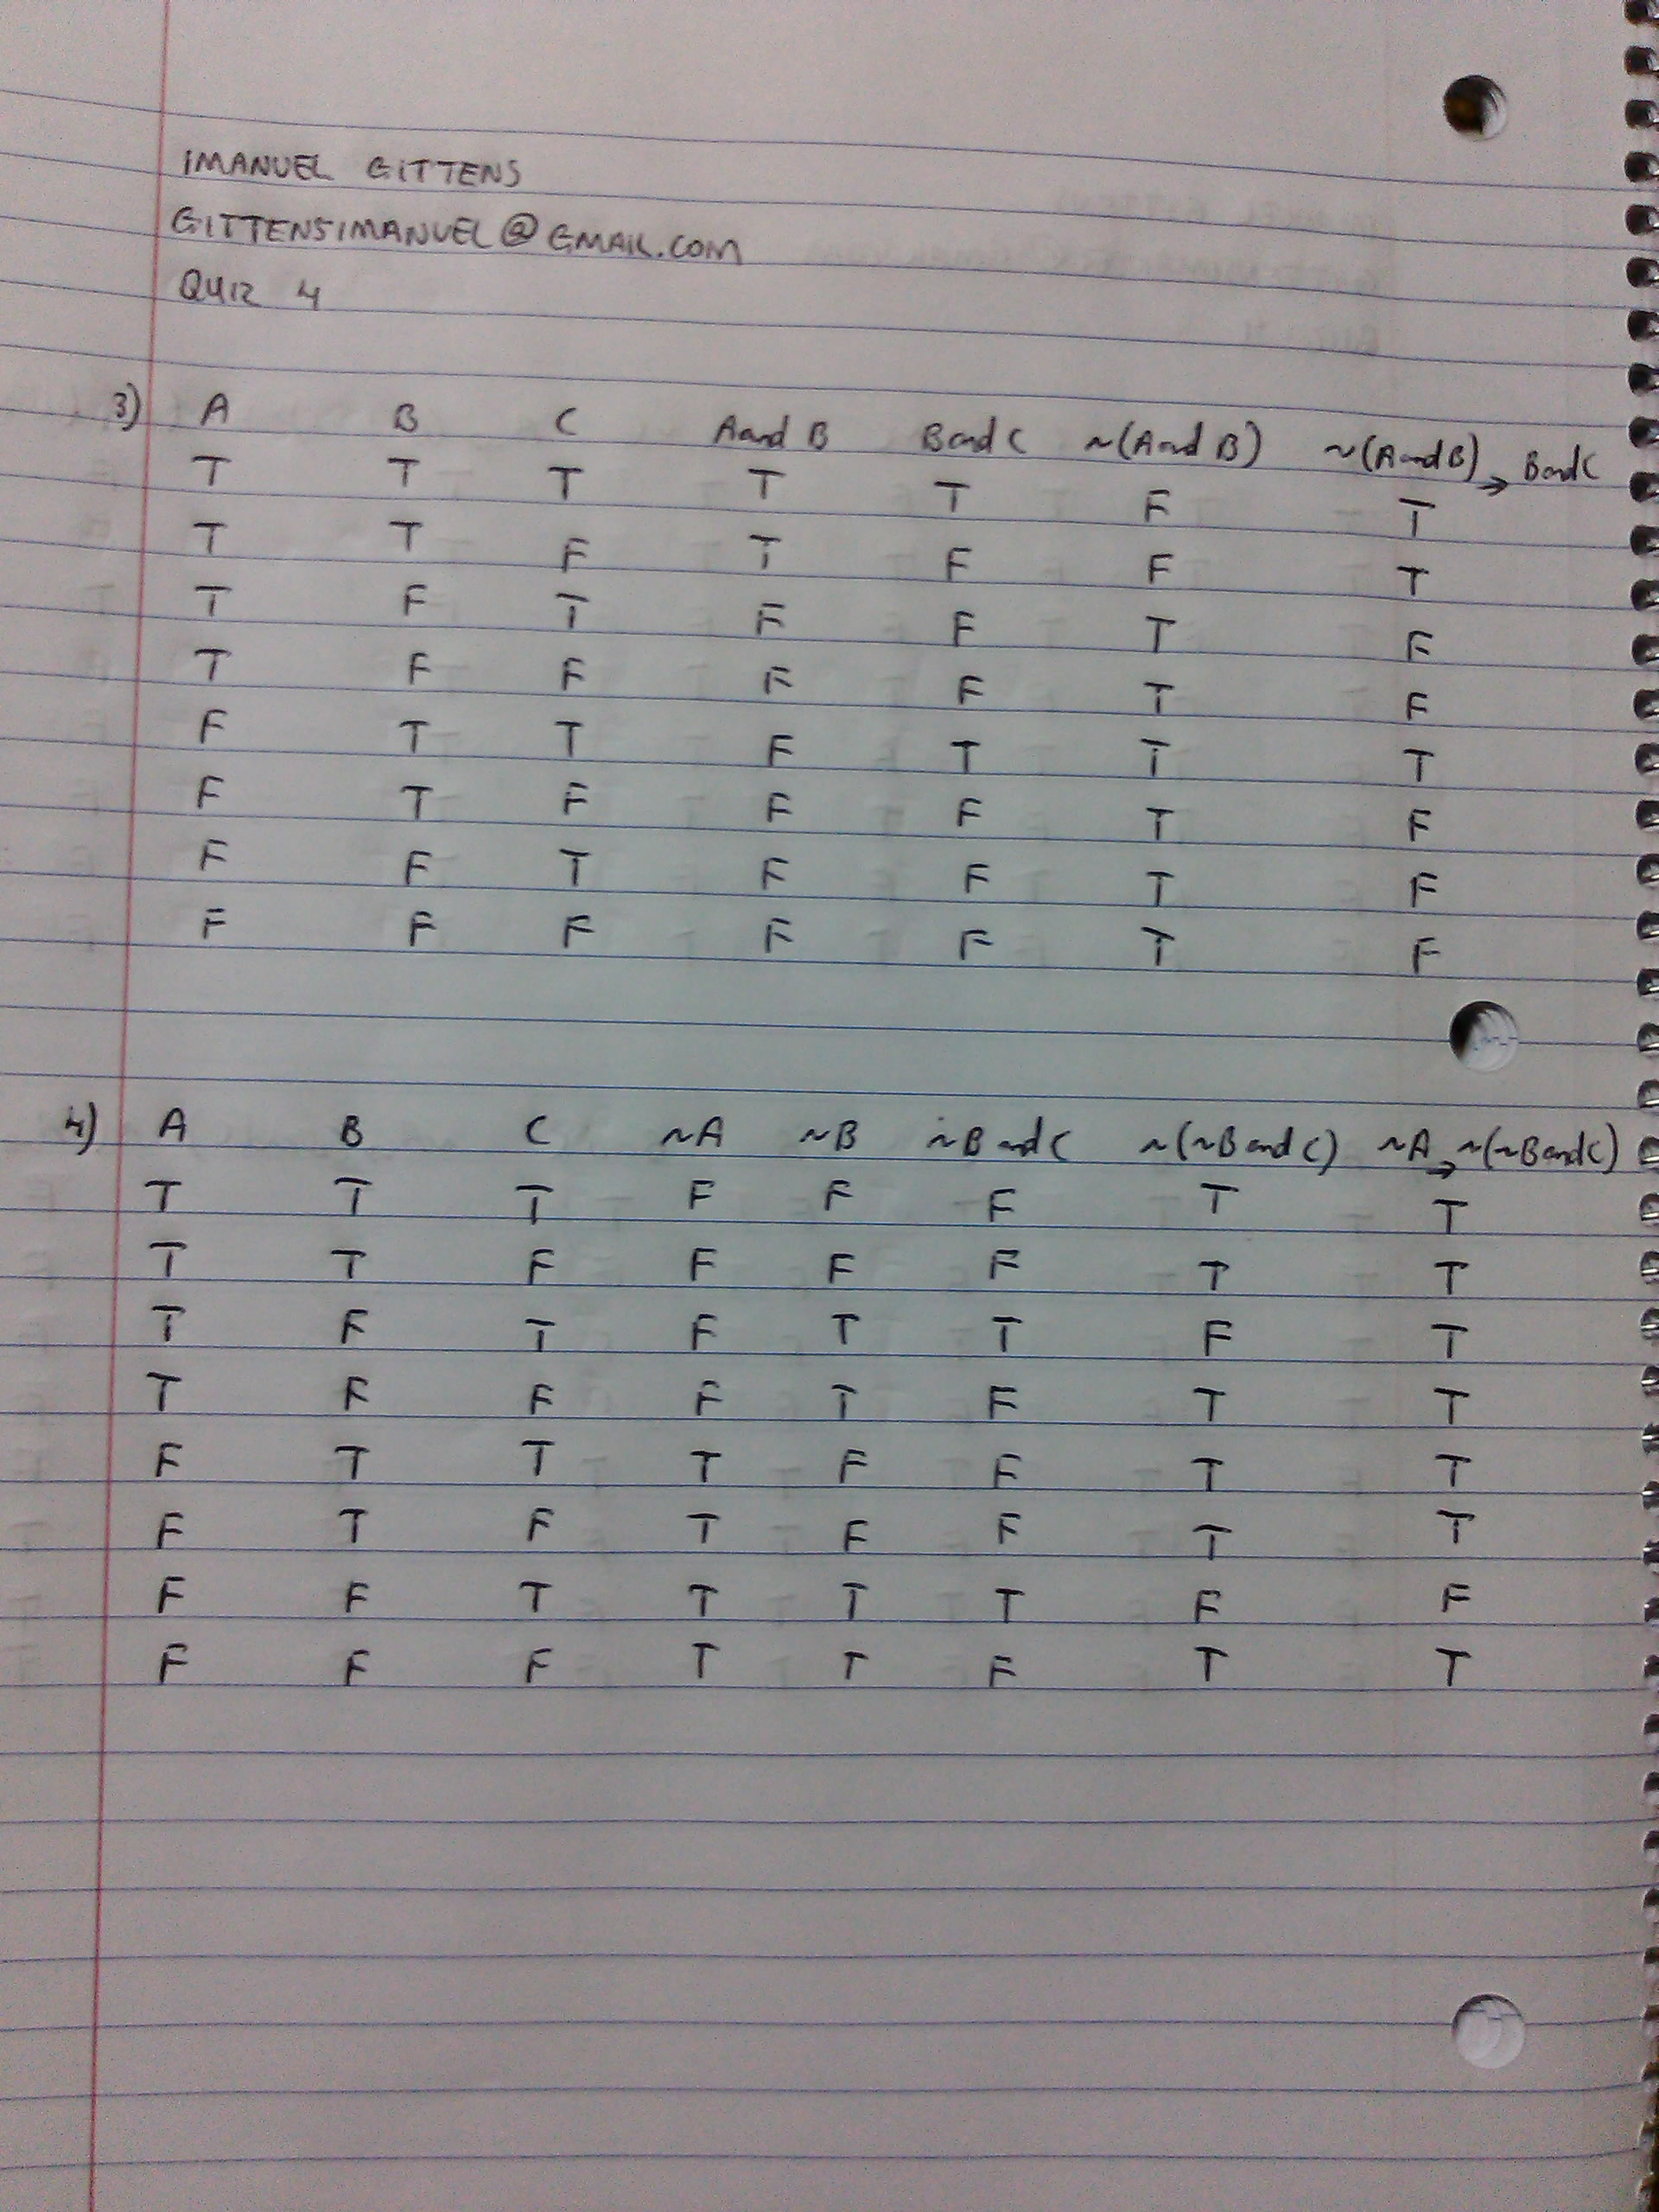 IMANUEL GITTENS
GITTENSIMANUEL@GMAIL.COM
QUIZ 4
3) A B C A and B B and C ~(A and B) ~(A and B) → B and C
T T T T T F T
T T F T F F T
T F T F F T F
T F F F F T F
F T T F T T T
F T F F F T F
F F T F F T F
F F F F F T F
4) A B C ~A ~B ~B and C ~(~B and C) ~A → ~(~B and C)
T T T F F F T T
T T F F F F T T
T F T F T T F T
T F F F T F T T
F T T T F F T T
F T F T F F T T
F F T T T T F F
F F F T T F T T